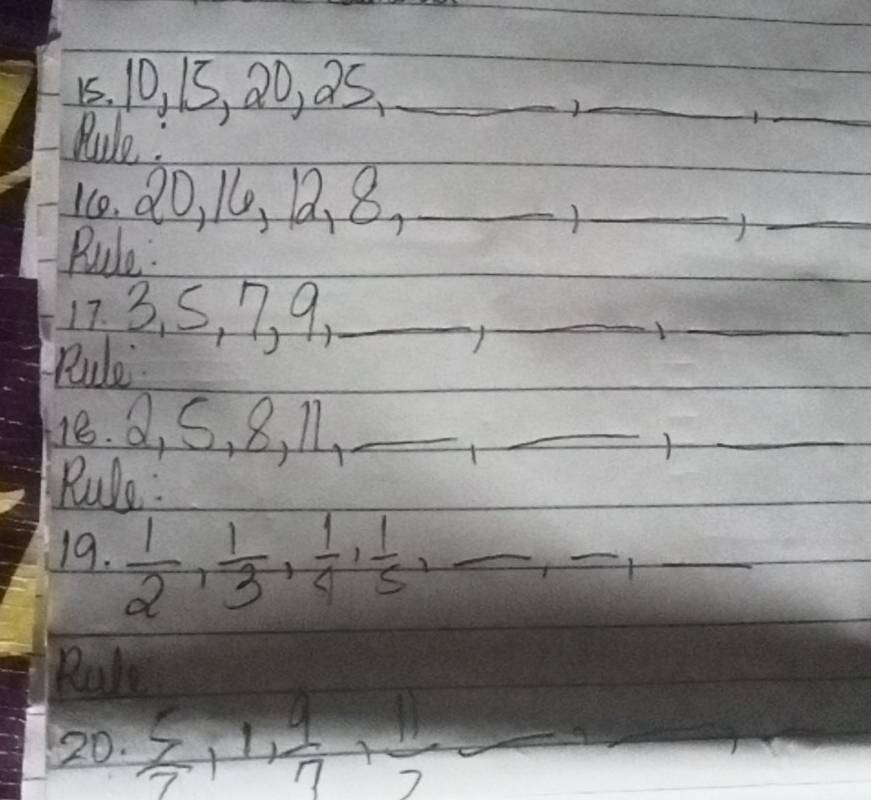 15. 10, 15, 20, 25, ___, ___, ___
Rule:
16. 20, 16, 12, 8, ___, ___, ___
Rule:
17. 3, 5, 7, 9, ___, ___, ___
Rule:
18. 2, 5, 8, 11, ___, ___, ___
Rule:
19. 1/2, 1/3, 1/4, 1/5, ___, ___, ___
Rule:
20. 5/7, 1, 9/7, 11/7 ___, ___, ___